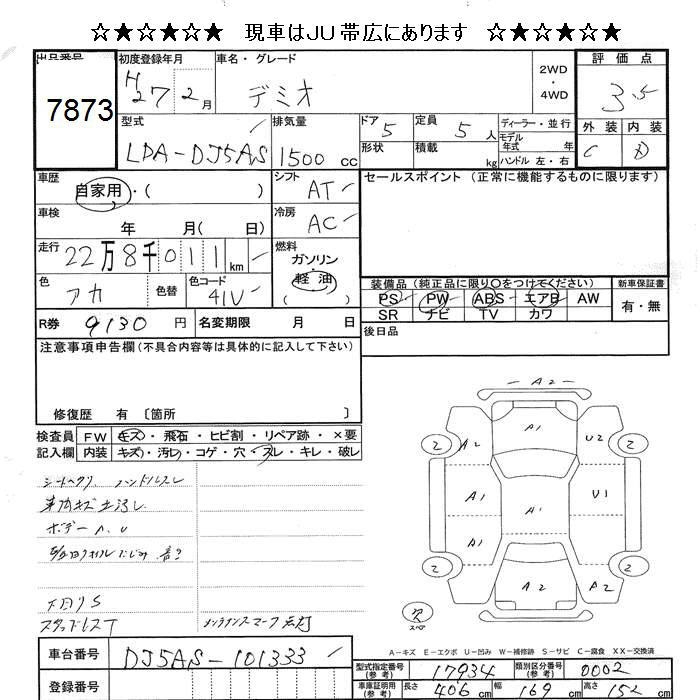 ☆★☆★☆ 現車はJU帯広にあります ☆★☆★☆
出品番号 初度登録年月 車名・グレード 2WD ・ 4WD 評価点
7873 H27 2月 デミオ 3.5
型式 排気量 ドア 定員 ディーラー・並行 外装 内装
LDA-DJ5AS 1500 cc 5 5人 モデル年式 年 C D
形状 積載 kg ハンドル 左・右
車歴 シフト セールスポイント(正常に機能するものに限ります)
自家用・( ) AT
車検 年 月( 日) 冷房 AC
走行 22万8千011 km 燃料 ガソリン・軽油 ( )
色 アカ 色替 色コード 41V
装備品(純正品に限り○をつけてください) 新車保証書
PS PW ABS エアB AW 有・無
SR ナビ TV カワ
R券 9130 円 名変期限 月 日
後日品
注意事項申告欄(不具合内容等は具体的に記入して下さい)
修復歴 有〔箇所
検査員 FW キズ・飛石・ヒビ割・リペア跡・×要
記入欄 内装 キズ・汚レ・コゲ・穴・スレ・キレ・破レ
ハンドルスレ
ボデーA、U
下回りS
スタッドレスT メンテナンスマーク点灯
A2
A1
2 A2 U2 2
A1 U1
A1 A1
2 A2 A2 2
スペア
A-キズ E-エクボ U-凹み W-補修跡 S-サビ C-腐食 XX-交換済
車台番号 DJ5AS-101333
型式指定番号(参考) 17934 類別区分番号(参考) 0002
登録番号
車庫証明用(参考) 長さ 406 cm 幅 169 cm 高さ 152 cm